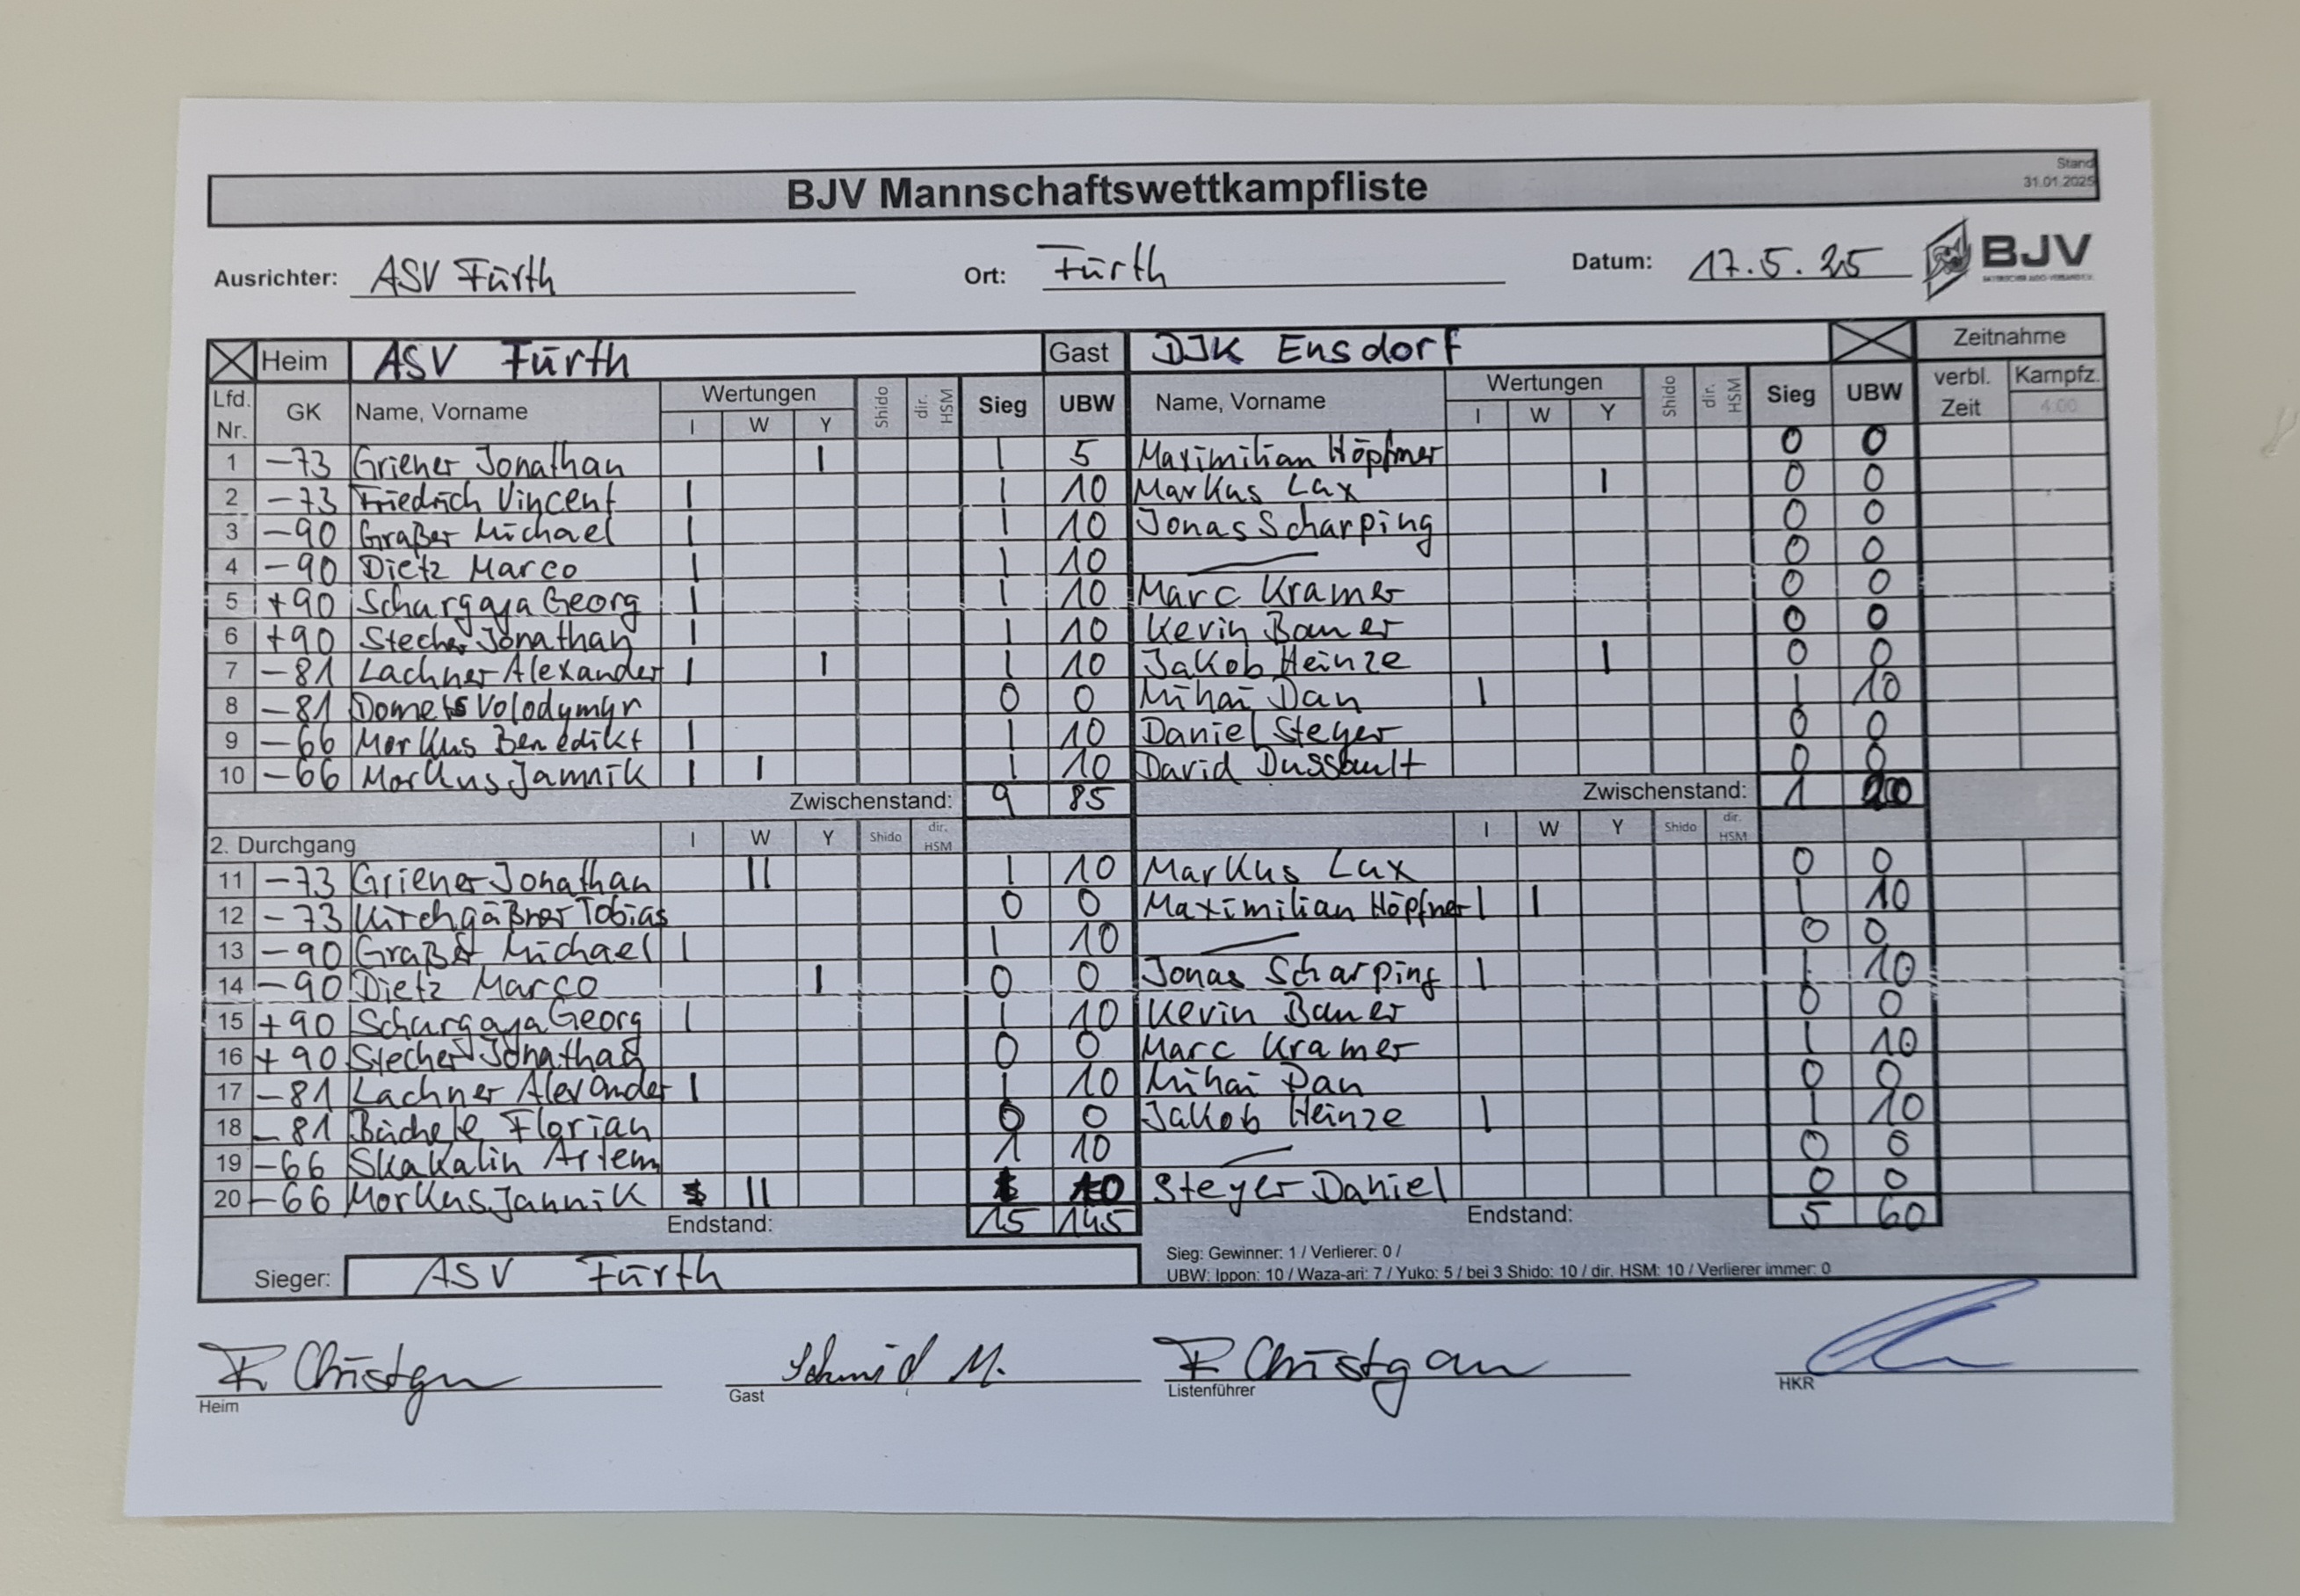 Stand
31.01.2025
BJV Mannschaftswettkampfliste
Ausrichter: ASV Fürth Ort: Fürth Datum: 17.5.25 BJV
Heim ASV Fürth Gast DJK Ensdorf Zeitnahme
Lfd. Nr. GK Name, Vorname Wertungen I W Y Shido dir. HSM Sieg UBW Name, Vorname Wertungen I W Y Shido dir. HSM Sieg UBW verbl. Zeit Kampfz. 4:00
1 -73 Griener Jonathan | 1 5 Maximilian Höpfner 0 0
2 -73 Friedrich Vincent | 1 10 Markus Lax | 0 0
3 -90 Graßer Michael | 1 10 Jonas Scharping 0 0
4 -90 Dietz Marco | 1 10 — 0 0
5 +90 Schargaya Georg | 1 10 Marc Kramer 0 0
6 +90 Stecher Jonathan | 1 10 Kevin Bauer 0 0
7 -81 Lachner Alexander | | 1 10 Jakob Heinze | 0 0
8 -81 Domets Volodymyr 0 0 Mihai Dan | 1 10
9 -66 Morkus Benedikt | 1 10 Daniel Steyer 0 0
10 -66 Morkus Jannik | | 1 10 David Dussault 0 0
Zwischenstand: 9 85 Zwischenstand: 1
2. Durchgang I W Y Shido dir. HSM I W Y Shido dir. HSM
11 -73 Griener Jonathan || 1 10 Markus Lax 0 0
12 -73 Kirchgäßner Tobias 0 0 Maximilian Höpfner | | 1 10
13 -90 Graßer Michael | 1 10 — 0 0
14 -90 Dietz Marco | 0 0 Jonas Scharping | 1 10
15 +90 Schargaya Georg | 1 10 Kevin Bauer 0 0
16 +90 Stecher Jonathan 0 0 Marc Kramer 1 10
17 -81 Lachner Alexander | 1 10 Mihai Dan 0 0
18 -81 Bächele Florian 0 0 Jakob Heinze | 1 10
19 -66 Skakalin Artem 1 10 — 0 0
20 -66 Morkus Jannik || 10 Steyer Daniel 0 0
Endstand: 15 145 Endstand: 5 60
Sieger: ASV Fürth
Sieg: Gewinner: 1 / Verlierer: 0 /
UBW: Ippon: 10 / Waza-ari: 7 / Yuko: 5 / bei 3 Shido: 10 / dir. HSM: 10 / Verlierer immer: 0
Schmid M. F. Christgau
Heim Gast Listenführer HKR